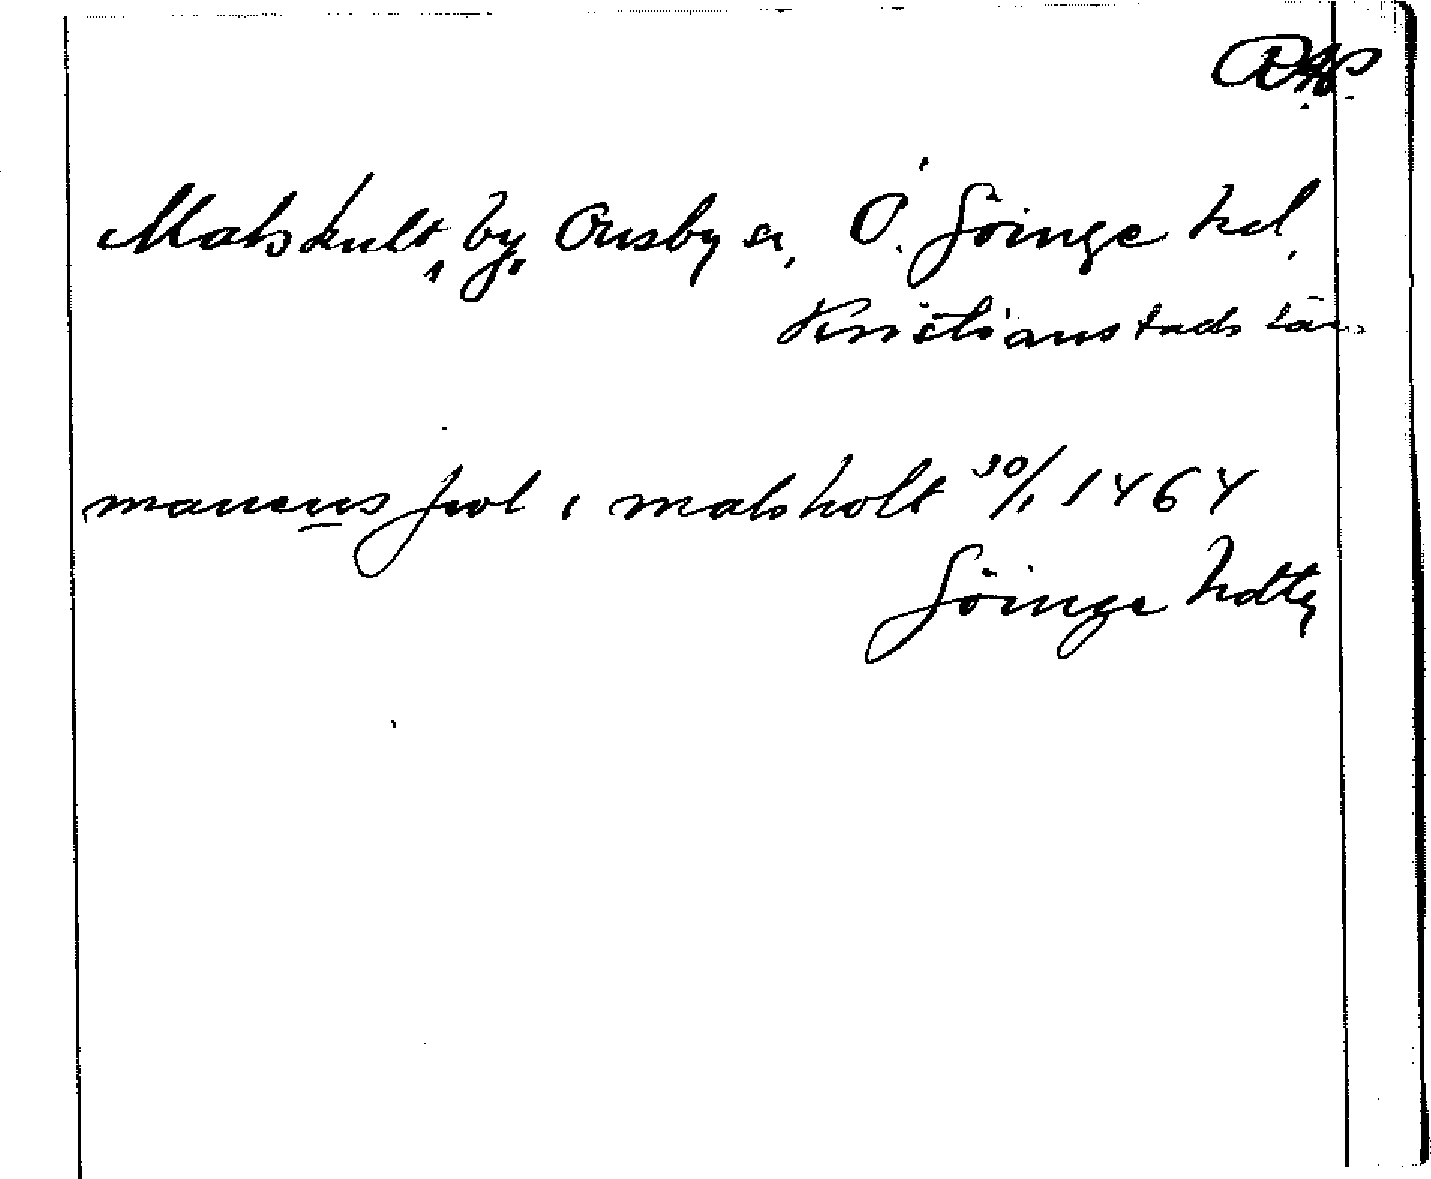 Malskult, by, Ousby sn, Ö. Göinge hd,
Kristianstads län
manens jwl i malsholt 30/1 1464
Göinge hdtg